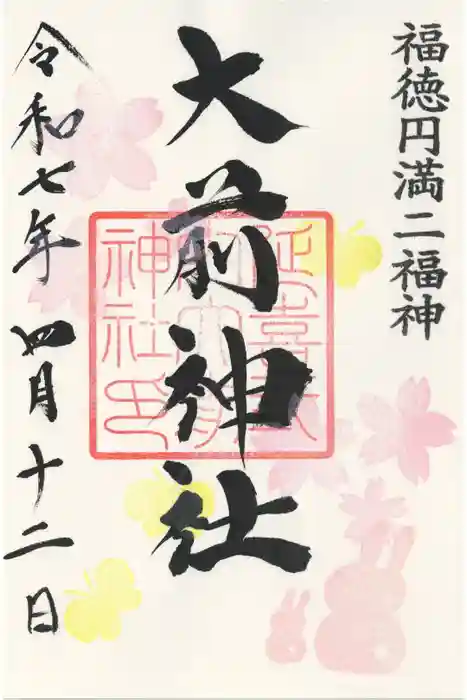 福徳円満二福神
大前神社
延喜式内大前神社印
令和七年四月十二日